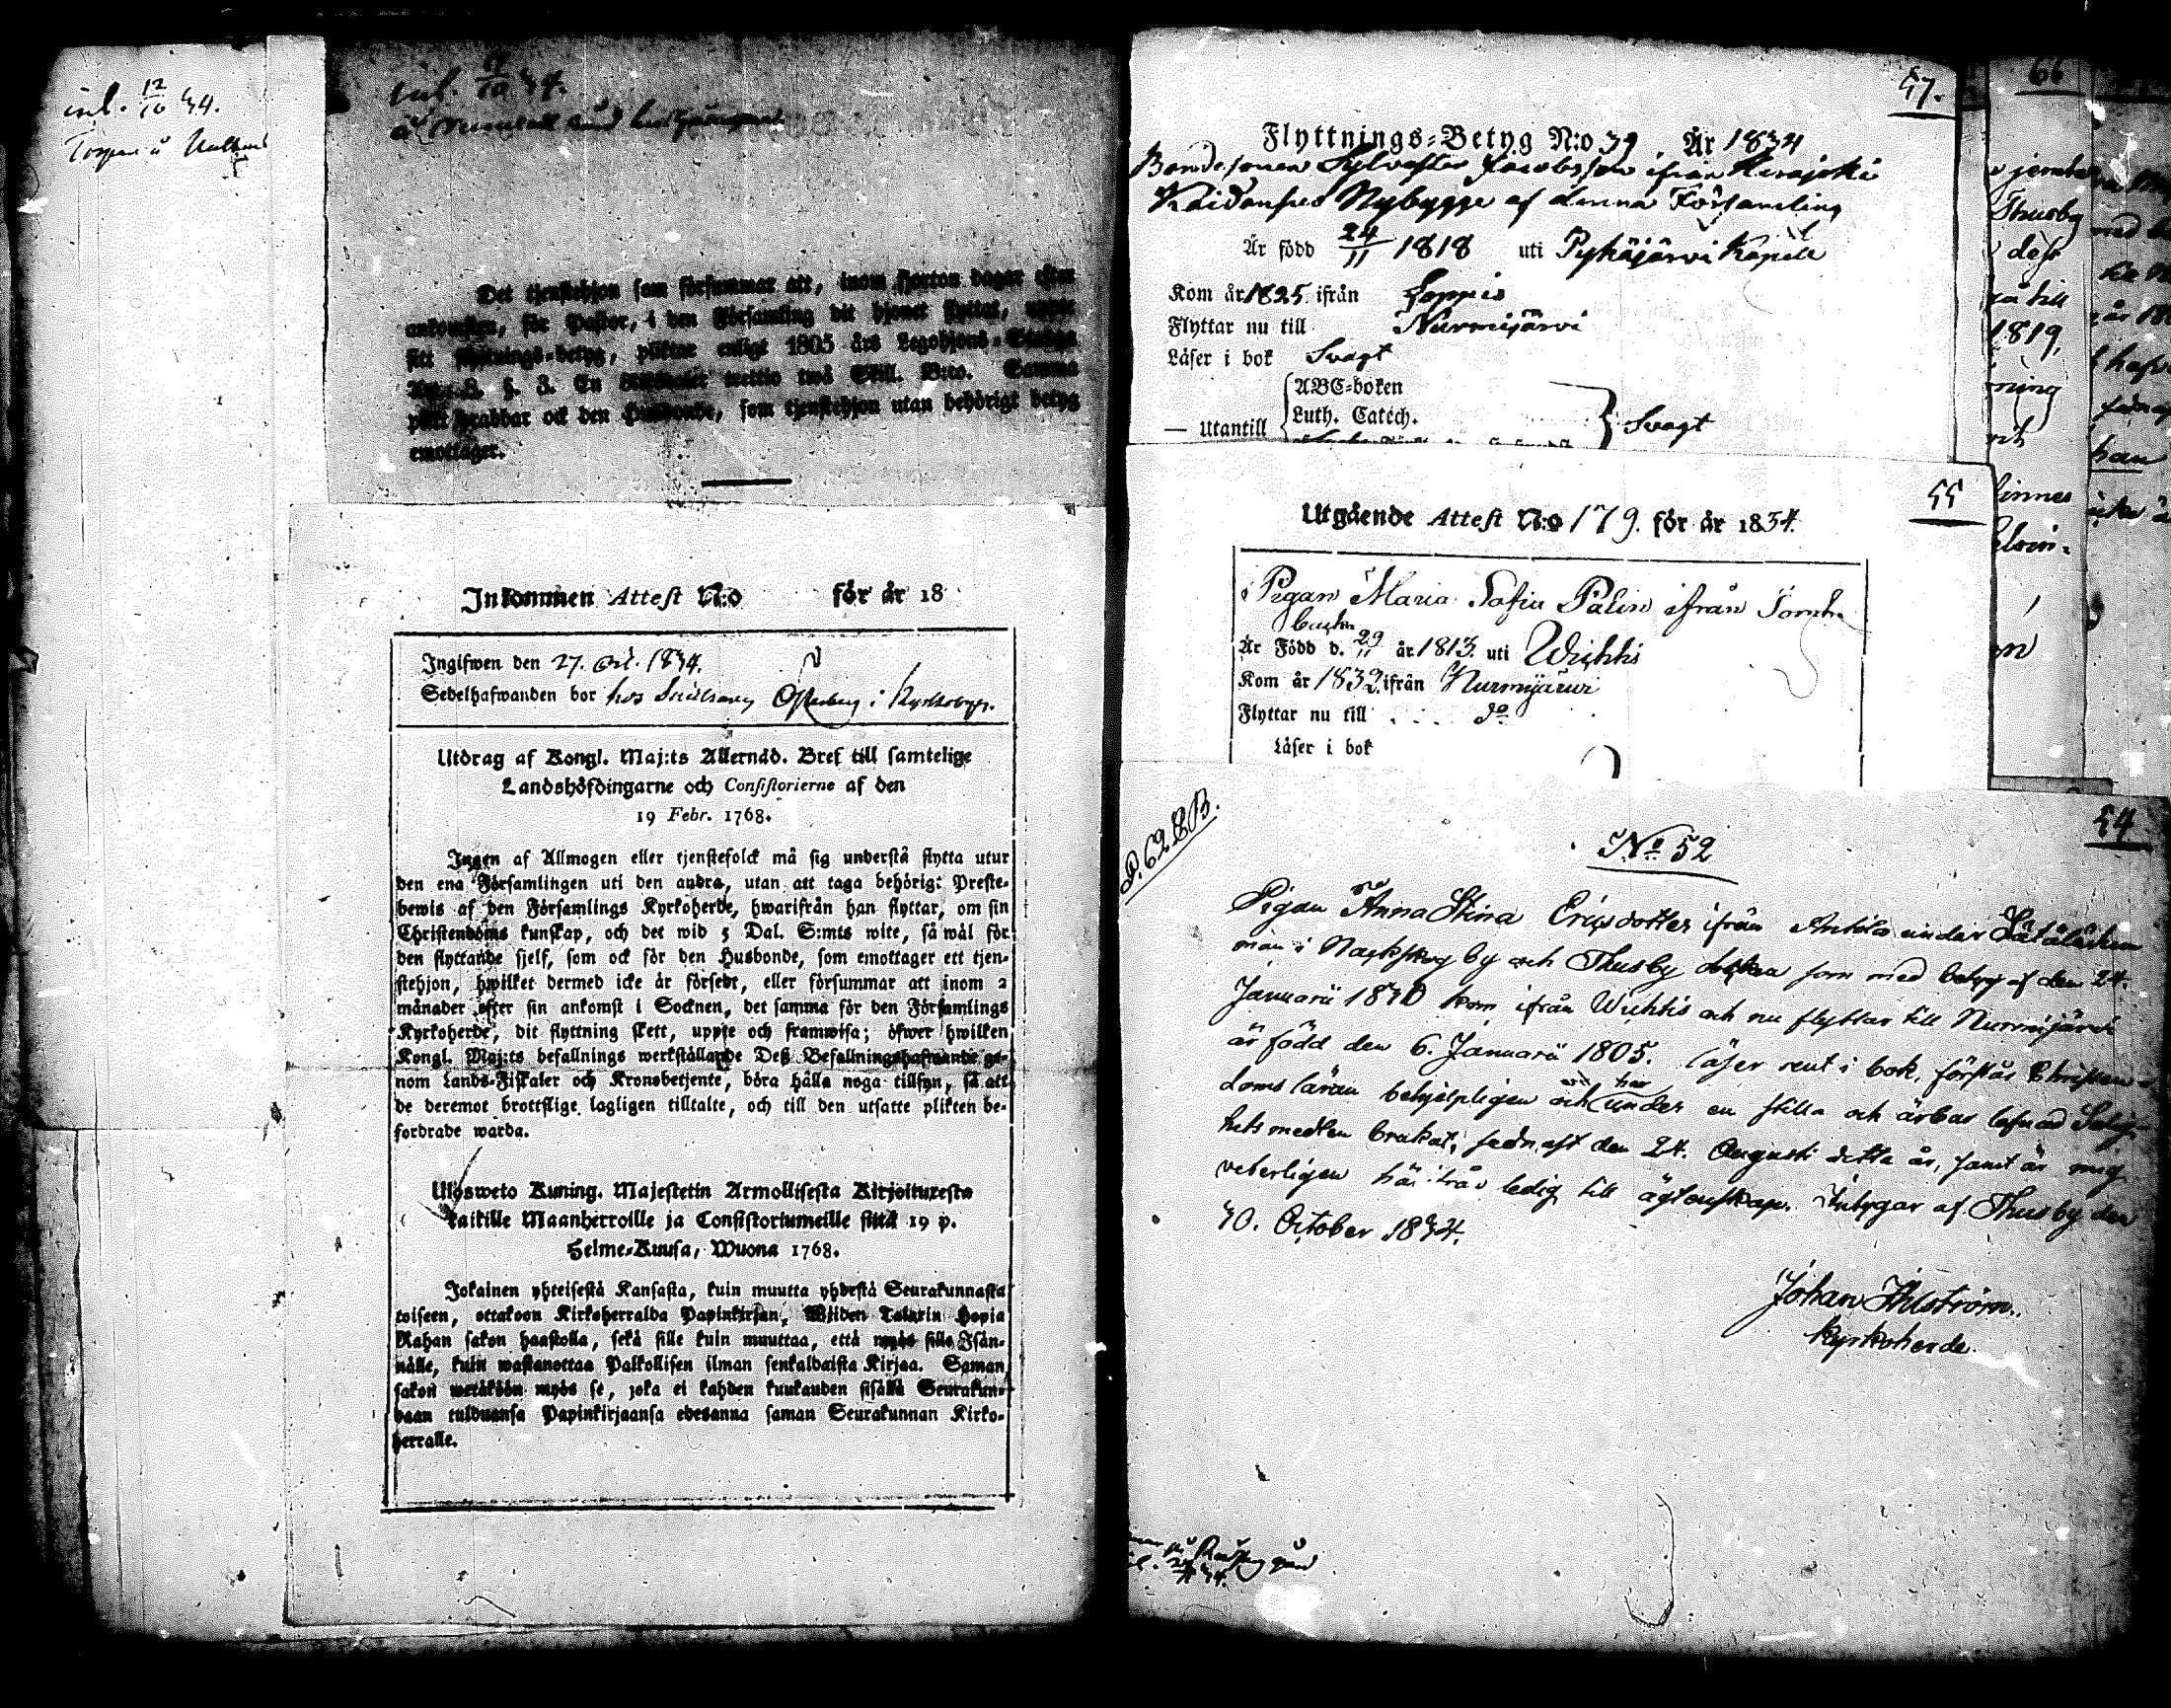 inl. 12/10 34.
Torpare
inl. 19/10 34.
Det tjenstehjon som försummar att, inom fjorton dagar efter
ankomsten, för Pastor, i den Församling dit hjonet flyttat, uppte
sitt flyttnings-betyg, pliktar enligt 1805 års Legohjons-Stadga
Art. 8. §. 3. En Riksdaler trettio twå Skill. B:co. Samma
plikt drabbar ock den Husbonde, som tjenstehjon utan behörigt betyg
emottager.
Inkommen Attest N:o för år 18
Ingifwen den 27. Oct. 1834.
Sedelhafwanden bor hos Österberg i Kyrkobyn.
Utdrag af Kongl. Maj:ts Allernåd. Bref till samtelige
Landshöfdingarne och Consistorierne af den
19 Febr. 1768.
Ingen af Allmogen eller tjenstefolck må sig understå flytta utur
den ena Församlingen uti den andra, utan att taga behörigt Preste-
bewis af den Församlings Kyrkoherde, hwarifrån han flyttar, om sin
Christendoms kunskap, och det wid 5 Dal. S:mts wite, så wäl för
den flyttande sjelf, som ock för den Husbonde, som emottager ett tjen-
stehjon, hwilket dermed icke är försedt, eller försummar att inom 2
månader efter sin ankomst i Socknen, det samma för den Församlings
Kyrkoherde, dit flyttning skett, uppte och framwisa; öfwer hwilken
Kongl. Maj:ts befallnings werkställande Deß Befallningshafwande ge-
nom Lands-Fiskaler och Kronobetjente, böra hålla noga tillsyn, så att
de deremot brottslige lagligen tilltalte, och till den utsatte plikten be-
fordrade warda.
Ulosweto Kuning. Majestetin Armollisesta Kirjoituresta
kaikille Maanherroille ja Consistoriumeille siitä 19 p.
Helme-Kuusa, Wuona 1768.
Jokainen yhteisestä Kansasta, kuin muutta yhdestä Seurakunnasta
toiseen, ottakoon Kirkoherralda Papinkirjan, Wiiden Talarin Hopia
Rahan sakon haastolla, sekä sille kuin muuttaa, että myös sille Isän-
nälle, kuin wastanottaa Palkollisen ilman senkaldaista Kirjaa. Saman
sakon wetäköön myös se, joka ei kahden kuukauden sisällä Seurakun-
daan tulduansa Papinkirjaansa edesanna saman Seurakunnan Kirko-
herralle.
57.
Flyttnings-Betyg N:o 39 År 1834
Bondesonen Sylvester Jacobsson ifrån Kerajoki
Nybygge af denna Församling
Är född 24/11 1818 uti Pyhäjärvi Kapell
Kom år 1825 ifrån Loppis
Flyttar nu till Nurmijärvi
Läser i bok Svagt
— Utantill
ABC-boken
Luth. Catech.
Svagt
55
Utgående Attest N:o 179. för år 1834.
Pigan Maria Sofia Palin ifrån
Är Född d. 29/11 år 1813. uti Wichtis
Kom år 1832. ifrån Nurmijärvi
Flyttar nu till . . . . do
Läser i bok
54
P. 62 L.B.
No 52
Pigan Anna Stina Ericsdotter ifrån Anttila under
man i Nackskog by och Thusby socken som med betyg af den 24.
Januarii 1830 kom ifrån Wichtis och nu flyttar till Nurmijärvi
är född den 6. Januarii 1805. läser rent i bok, förstår Christen-
doms läran behjelpligen och har under en stilla och ärbar lefnad Salig-
hets medlen brukat, sednast den 24. Augusti detta år, samt är mig
veterligen härifrån ledig till ägtenskap. Intygar af Thusby den
30. October 1834.
Johan Ahlström.
Kyrkoherde.
66
Thusby
dess
till
1819,
ning
han